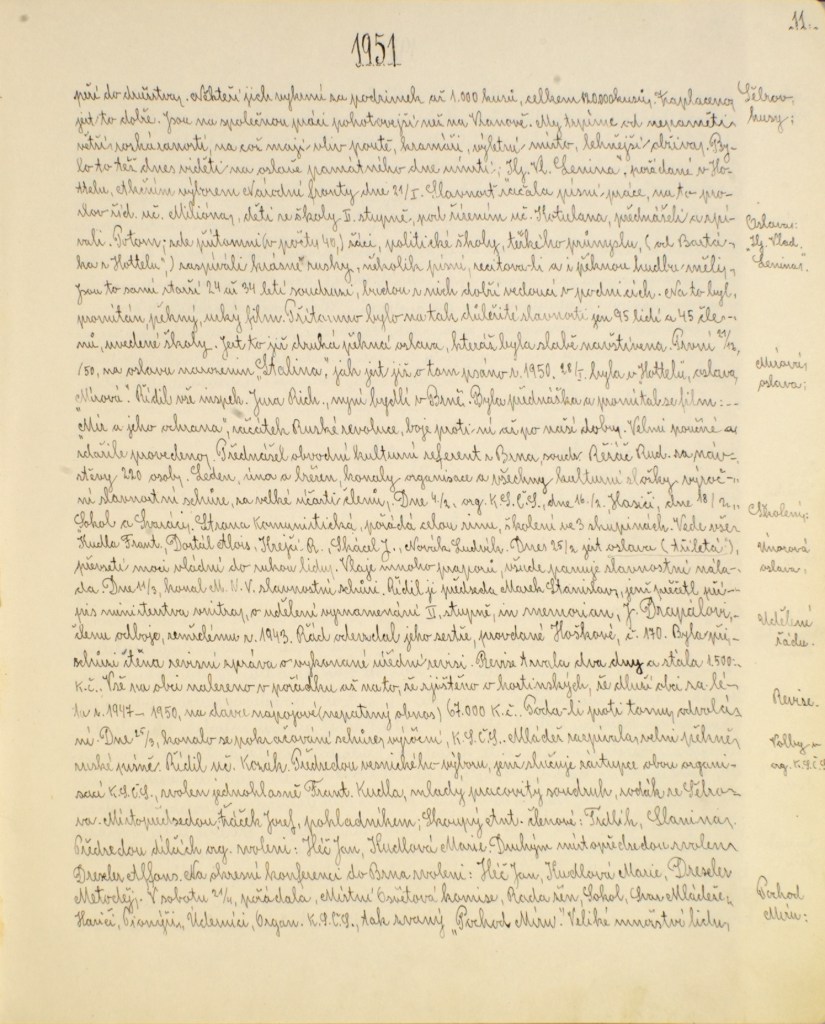 11.
1951
peří do družstva. Někteří jich vykrmí za podzimek až 1.000 kusů, celkem 12.000 kusů. Zaplaceno
jest to dobře. Jsou na společnou práci pohotovější než na Vranově. My trpíme od nepaměti
větší rozháraností, na což mají vliv poutě, kramáři, výletní místo, lehnější obživa. By-
lo to též dnes viděti na oslavě památného dne úmrtí; Ilj. Vl. Lenina", pořádané v Ho-
ttelu, Akčním výborem Národní fronty dne 21/I. Slavnost začala písní práce, na to pro-
slov říd. uč. Miliána, děti ze školy II. stupně, pod řízením uč. Kotulana, přednášeli a zpí-
vali. Potom; zde přítomní (v počtu 40,) žáci, politické školy, těžkého průmyslu, (od Bartá-
ka z Hottelu",) zazpívali krásně rusky, několik písní, recitova-li a i pěknou hudbu měli,
Jsou to samí starší 24 až 34 letí soudruzi, budou z nich dobří vedoucí v podnicích. Na to byl,
promítán pěkný, ruský film. Přítomno bylo na tak důležité slavnosti jen 95 lidí a 45 čle-
nů, uvedené školy. Jest to již druhá pěkná oslava, kteráž byla slabě navštívena. První 21/12
/50, na oslavu narozenin „Stalina", jak jest již o tom psáno r. 1950. 28/I. byla v Hottelu, oslava
Mírová". Řídil vše inspek. Jura Rich., nyní bydlí v Brně. Byla přednáška a promítal se film: ..-
„Mír a jeho ochrana", začátek Ruské revoluce, boje proti ní až po naší doby. Velmi poučné a
zdařile provedeno. Přednášel obvodní kulturní referent z Brna, soudr. Řezáč Rud. za náv-
štěvy 220 osob. Leden, únor a březen, konaly organisace a všechny kulturní složky výroč-
ní slavnostní schůze, za velké účasti členů. Dne 4/2., org. K.S.Č.S., dne 16/2. Hasiči, dne 18/2.,
Sokol a Svazáci. Strana Komunistická, pořádá celou zimu, školení ve 3 skupinách. Vede vše:
Kudla Frant., Dostál Alois, Krejčí R., Skácel J., Novák Ludvík. Dnes 25/2 jest oslava (tříletá),
převzetí moci vládní do rukou lidu. Vlaje mnoho praporů, všude panuje slavnostní nála-
da. Dne 11/3, konal M.N.V. slavnostní schůzi. Řídil ji předseda Marek Stanislav, jenž přečetl pří-
pis ministerstva vnitra, o udělení vyznamenání II. stupně, in memorian, J. Drápalovi,-
členu odboje, zemřelému r. 1943. Řád odevzdal jeho sestře, provdané Hoškové, č. 170. Byla při-
schůzi čtena revisní zpráva o vykonané úřední revisi. Revise trvala dva dny a stála 1.500.-
K.č. Vše na obci nalezeno v pořádku až na to, že zjištěno v hostinských, že dluží obci za lé-
ta r. 1947 – 1950, na dávce nápojové (nepatrný obnos) 67.000 K.č. Poda-li proti tomu, odvolá-
ní. Dne 25/3, konalo se pokračování schůze, výroční, K.S.Č.S. Mládež zazpívala velmi pěkně,
ruské písně. Řídil uč. Kozák. Předsedou vesnického výboru, jenž slučuje zástupce obou organi-
sací K.S.Č.S., zvolen jednohlasně Frant. Kudla, mladý pracovitý soudruh, rodák ze Šebro-
va. Místopředsedou, Žáček Josef, pokladníkem; Skoupý Ant. členové: Trdlík, Slanina,
Předsedou dílčích org. zvoleni: Héč Jan, Kudlová Marie. Druhým místopředsedou zvolen
Drexler Alfons. Na okresní konferenci do Brna zvoleni: Héč Jan, Kudlová Marie, Drexler
Metoděj. V sobotu 21/4, pořádala, Místní Osvětová komise, Rada žen, Sokol, Svaz Mládeže,
Hasiči, Pionýři, Úderníci, Organ. K.S.Č.S., tak zvaný „Pochod Míru". Veliké množství lidu,
Šebrov,
husy;
Oslava:
Ilj. Vlad.
„Lenina".
Mírová,
oslava;
Školení;
Únorová
oslava;
Udělení
řádu.
Revise.
Volby v
org. K.S.Č.S
Pochod
Míru: